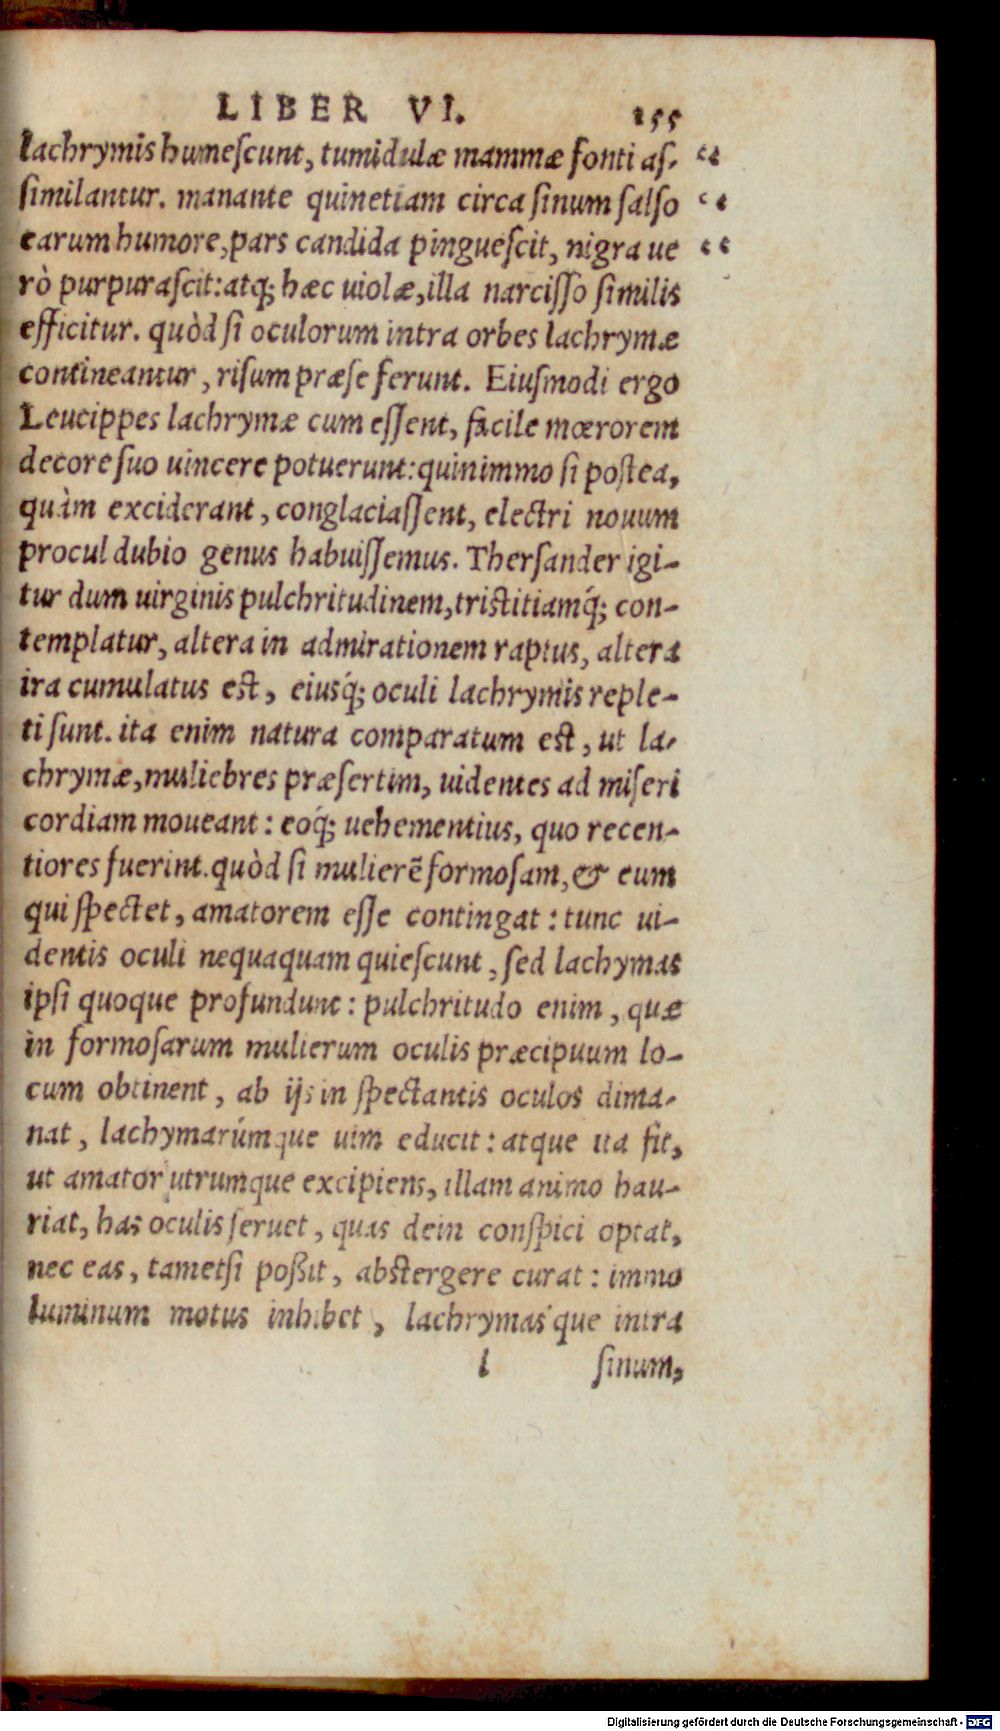 LIBER VI. 155
lachrymis humeſcunt, tumidulæ mammæ fonti aſ- “
ſimilantur. manante quinetiam circa ſinum ſalſo “
earum humore, pars candida pingueſcit, nigra ue “
rò purpuraſcit: atq; hæc uiolæ, illa narciſſo ſimilis
efficitur. quòd ſi oculorum intra orbes lachrymæ
contineantur, riſum præſe ferunt. Eiuſmodi ergo
Leucippes lachrymæ cum eſſent, facile mœrorem
decore ſuo uincere potuerunt: quinimmo ſi poſtea,
quàm exciderant, conglaciaſſent, electri nouum
procul dubio genus habuiſſemus. Therſander igi-
tur dum uirginis pulchritudinem, triſtitiamq́; con-
templatur, altera in admirationem raptus, altera
ira cumulatus eſt, eiusq́; oculi lachrymis reple-
ti ſunt. ita enim natura comparatum eſt, ut la-
chrymæ, muliebres præſertim, uidentes ad miſeri
cordiam moueant: eoq́; uehementius, quo recen-
tiores fuerint. quòd ſi mulierē formoſam, & eum
qui ſpectet, amatorem eſſe contingat: tunc ui-
dentis oculi nequaquam quieſcunt, ſed lachymas
ipſi quoque profundunt: pulchritudo enim, quæ
in formoſarum mulierum oculis præcipuum lo-
cum obtinent, ab ijs in ſpectantis oculos dima-
nat, lachymarúmque uim educit: atque ita fit,
ut amator utrumque excipiens, illam animo hau-
riat, has oculis ſeruet, quas dein conſpici optat,
nec eas, tametſi poßit, abſtergere curat: immo
luminum motus inhibet, lachrymas'que intra
l ſinum,
Digitalisierung gefördert durch die Deutsche Forschungsgemeinschaft - DFG